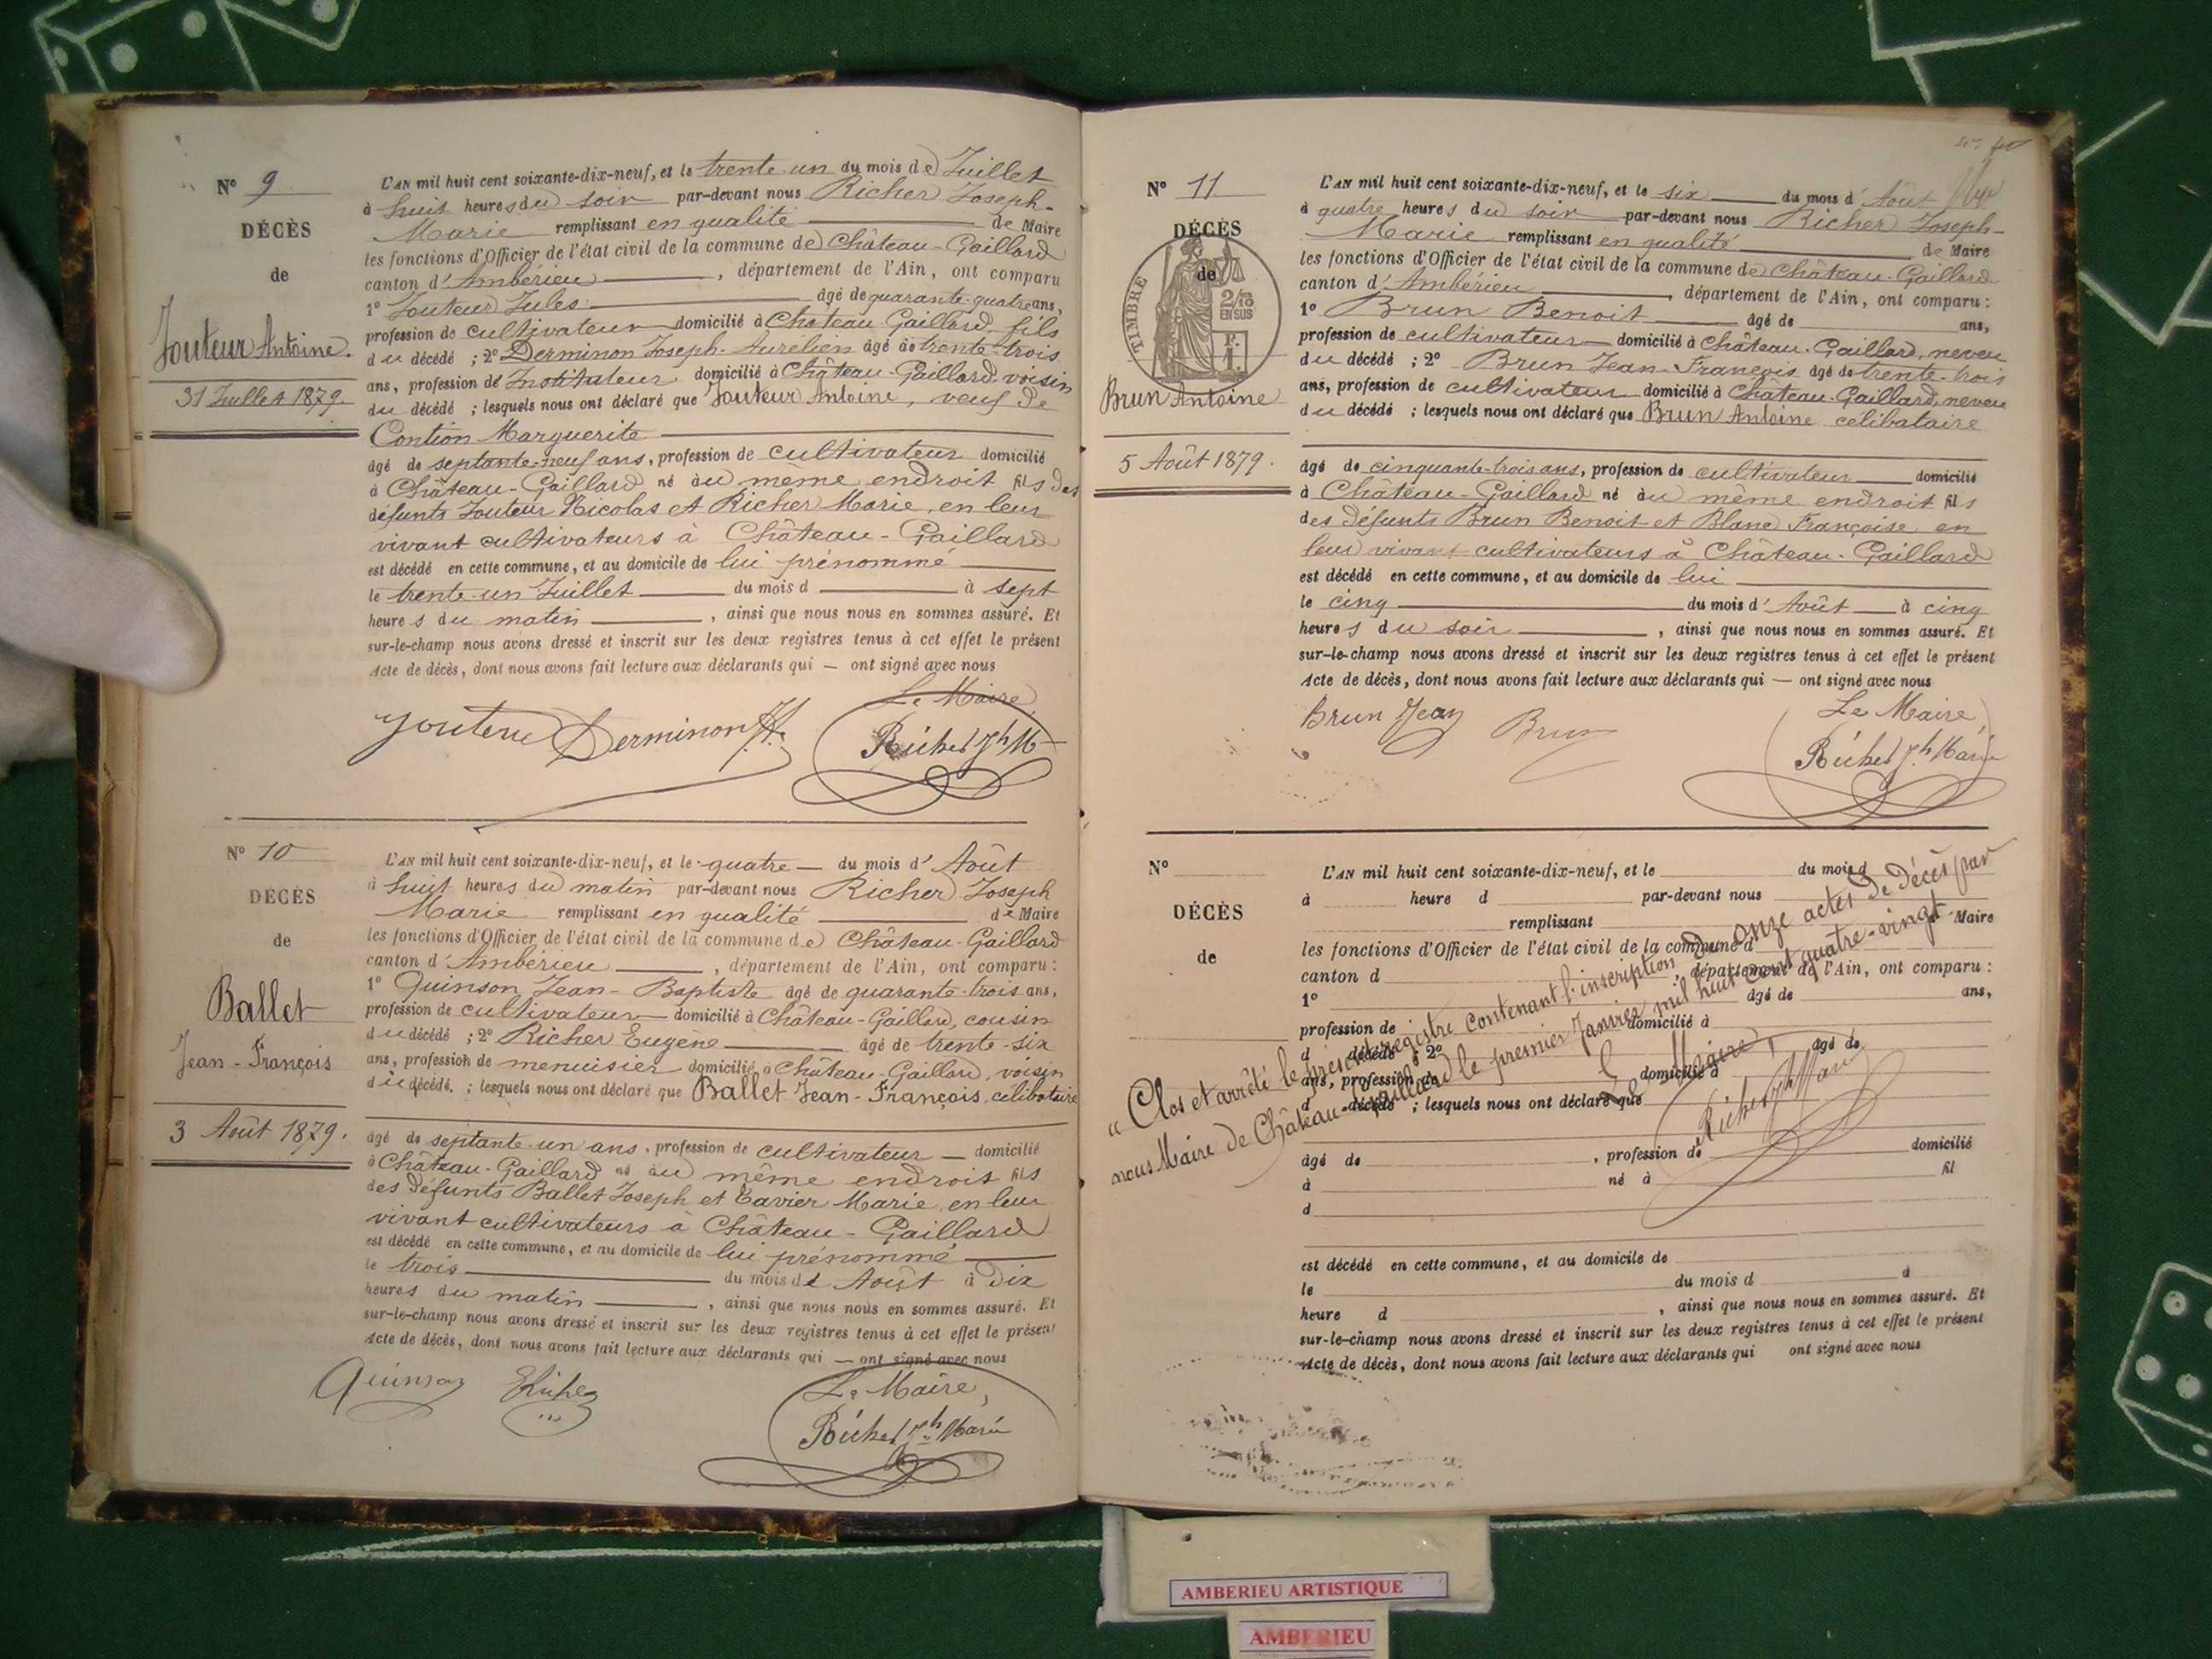 N° 9
DÉCÈS
de
Jouteur Antoine.
31 Juillet 1879.
L'AN mil huit cent soixante-dix-neuf, et le trente-un du mois de Juillet
à huit heures du soir par-devant nous Richer Joseph-
Marie remplissant en qualité de Maire
les fonctions d'Officier de l'état civil de la commune de Château-Gaillard
canton d'Ambérieu, département de l'Ain, ont comparu
1° Jouteur Jules âgé de quarante-quatre ans,
profession de cultivateur domicilié à Château-Gaillard, fils
du décédé ; 2° Derminon Joseph-Aurelien âgé de trente-trois
ans, profession de Instituteur domicilié à Château-Gaillard voisin
du décédé ; lesquels nous ont déclaré que Jouteur Antoine, veuf de
Contion Marguerite
âgé de septante-neuf ans, profession de cultivateur domicilié
à Château-Gaillard né au même endroit fils des
défunts Jouteur Nicolas et Richer Marie, en leur
vivant cultivateurs à Château-Gaillard
est décédé en cette commune, et au domicile de lui prénommé
le trente-un Juillet du mois d à sept
heures du matin, ainsi que nous nous en sommes assuré. Et
sur-le-champ nous avons dressé et inscrit sur les deux registres tenus à cet effet le présent
Acte de décès, dont nous avons fait lecture aux déclarants qui — ont signé avec nous
Le Maire,
Jouteur Derminon JA. Richer Jh M
N° 10
DÉCÈS
de
Ballet
Jean-François
3 Août 1879.
L'AN mil huit cent soixante-dix-neuf, et le quatre — du mois d'Août
à huit heures du matin par-devant nous Richer Joseph
Marie remplissant en qualité de Maire
les fonctions d'Officier de l'état civil de la commune de Château-Gaillard
canton d'Ambérieu, département de l'Ain, ont comparu :
1° Quinson Jean-Baptiste âgé de quarante-trois ans,
profession de cultivateur domicilié à Château-Gaillard, cousin
du décédé ; 2° Richer Eugène âgé de trente-six
ans, profession de menuisier domicilié à Château-Gaillard, voisin
du décédé. ; lesquels nous ont déclaré que Ballet Jean-François, célibataire
âgé de septante-un ans, profession de cultivateur — domicilié
à Château-Gaillard né au même endroit fils
des défunts Ballet Joseph et Cavier Marie, en leur
vivant cultivateurs à Château-Gaillard
est décédé en cette commune, et au domicile de lui prénommé
le trois du mois de Août à dix
heures du matin, ainsi que nous nous en sommes assuré. Et
sur-le-champ nous avons dressé et inscrit sur les deux registres tenus à cet effet le présent
Acte de décès, dont nous avons fait lecture aux déclarants qui — ont signé avec nous
Le Maire,
Quinson ERicher Richer Jh Marie
N° 11
DÉCÈS
de
TIMBRE
2/10
EN SUS
Brun Antoine
5 Août 1879.
L'AN mil huit cent soixante-dix-neuf, et le six du mois d'Août
à quatre heures du soir par-devant nous Richer Joseph-
Marie remplissant en qualité de Maire
les fonctions d'Officier de l'état civil de la commune de Château-Gaillard
canton d'Ambérieu, département de l'Ain, ont comparu :
1° Brun Benoit âgé de ans,
profession de cultivateur domicilié à Château-Gaillard, neveu
du décédé ; 2° Brun Jean-François âgé de trente-trois
ans, profession de cultivateur domicilié à Château-Gaillard, neveu
du décédé ; lesquels nous ont déclaré que Brun Antoine célibataire
âgé de cinquante-trois ans, profession de cultivateur domicilié
à Château-Gaillard né au même endroit fils
des défunts Brun Benoit et Blanc Françoise en
leur vivant cultivateurs à Château-Gaillard
est décédé en cette commune, et au domicile de lui
le cinq du mois d'Août à cinq
heures du soir, ainsi que nous nous en sommes assuré. Et
sur-le-champ nous avons dressé et inscrit sur les deux registres tenus à cet effet le présent
Acte de décès, dont nous avons fait lecture aux déclarants qui — ont signé avec nous
Le Maire
Brun Jean Brun Richer Jh Marie
N°
DÉCÈS
de
L'AN mil huit cent soixante-dix-neuf, et le du mois d
à heure d par-devant nous
remplissant Maire
les fonctions d'Officier de l'état civil de la commune d
canton d , département de l'Ain, ont comparu :
1° âgé de ans,
profession de domicilié à
d décédé ; 2° âgé de
ans, profession de domicilié à
d décédé ; lesquels nous ont déclaré que
âgé de , profession de domicilié
à né à fil
d
est décédé en cette commune, et au domicile de
le du mois d à
heure d , ainsi que nous nous en sommes assuré. Et
sur-le-champ nous avons dressé et inscrit sur les deux registres tenus à cet effet le présent
Acte de décès, dont nous avons fait lecture aux déclarants qui ont signé avec nous
"Clos et arrêté le présent registre contenant l'inscription de onze actes de décès par
nous Maire de Château-Gaillard le premier Janvier mil huit cent quatre-vingt
Le Maire,
Richer Jh Marie
AMBERIEU ARTISTIQUE
AMBERIEU